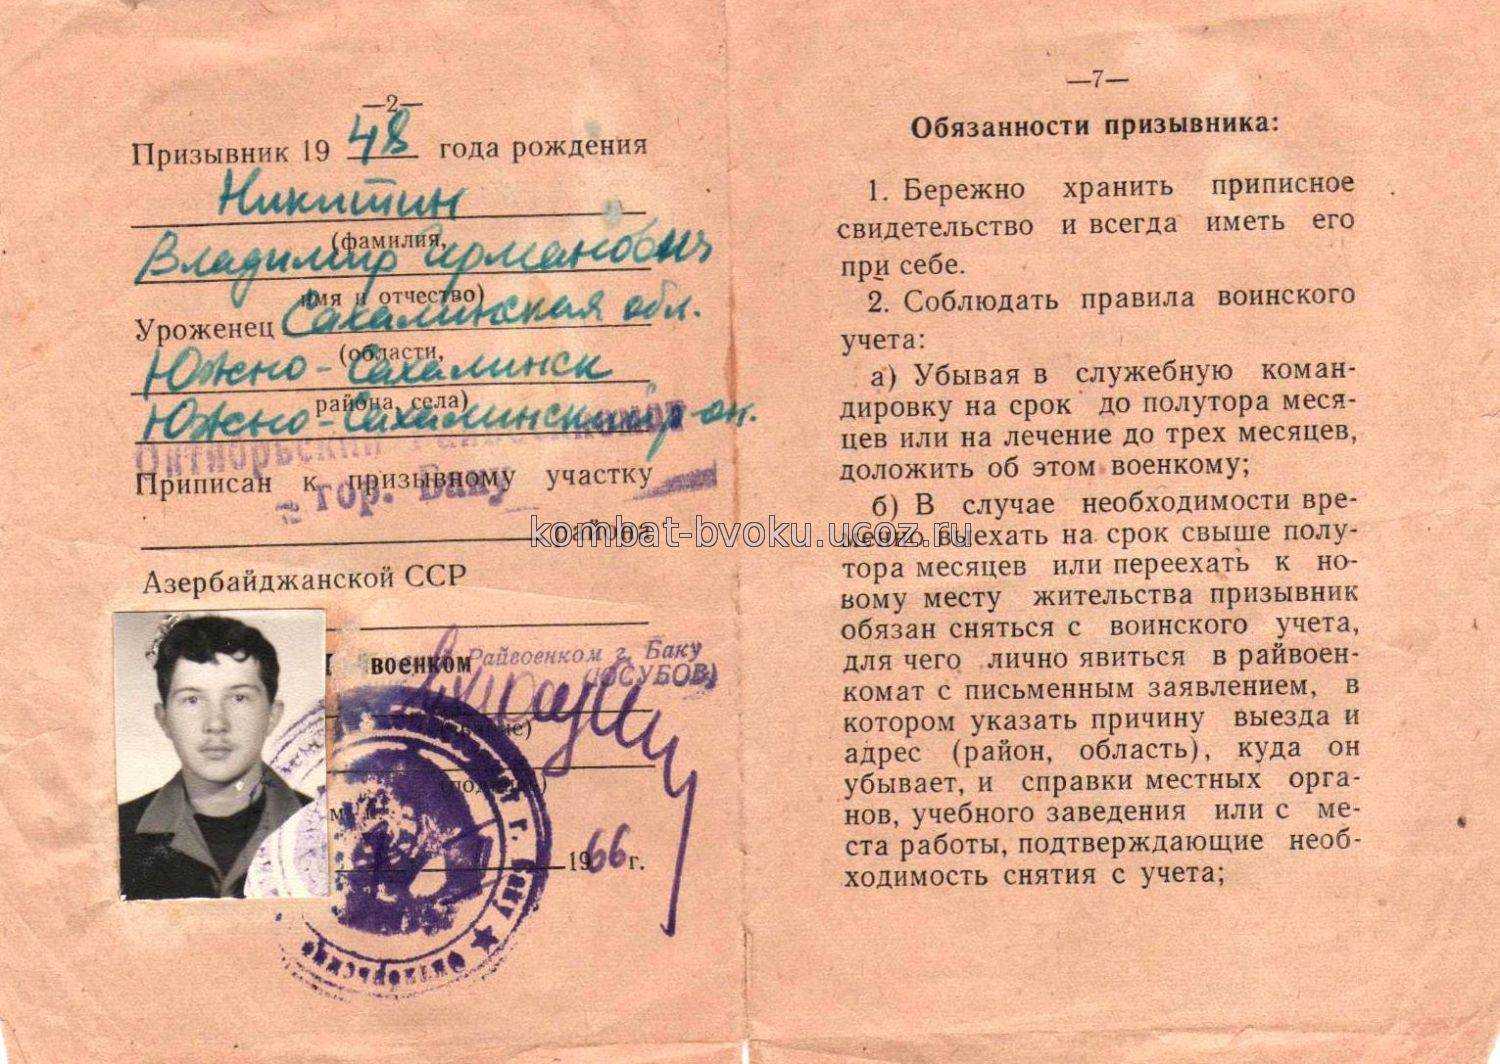 —2—
Призывник 19 48 года рождения
Никитин
(фамилия,
Владимир Германович
имя и отчество)
Уроженец Сахалинская обл.
(области,
Южно-Сахалинск
района, села)
Южно-Сахалинский р-он.
Октябрьский Райвоенкомат
Приписан к призывному участку
гор. Баку
района
Азербайджанской ССР
военком
Райвоенком г. Баку
(ЮСУБОВ)
1966 г.
Октябрьский
г. Баку
—7—
Обязанности призывника:
1. Бережно хранить приписное
свидетельство и всегда иметь его
при себе.
2. Соблюдать правила воинского
учета:
а) Убывая в служебную коман-
дировку на срок до полутора меся-
цев или на лечение до трех месяцев,
доложить об этом военкому;
б) В случае необходимости вре-
менно выехать на срок свыше полу-
тора месяцев или переехать к но-
вому месту жительства призывник
обязан сняться с воинского учета,
для чего лично явиться в райвоен-
комат с письменным заявлением, в
котором указать причину выезда и
адрес (район, область), куда он
убывает, и справки местных орга-
нов, учебного заведения или с ме-
ста работы, подтверждающие необ-
ходимость снятия с учета;
kombat-bvoku.ucoz.ru